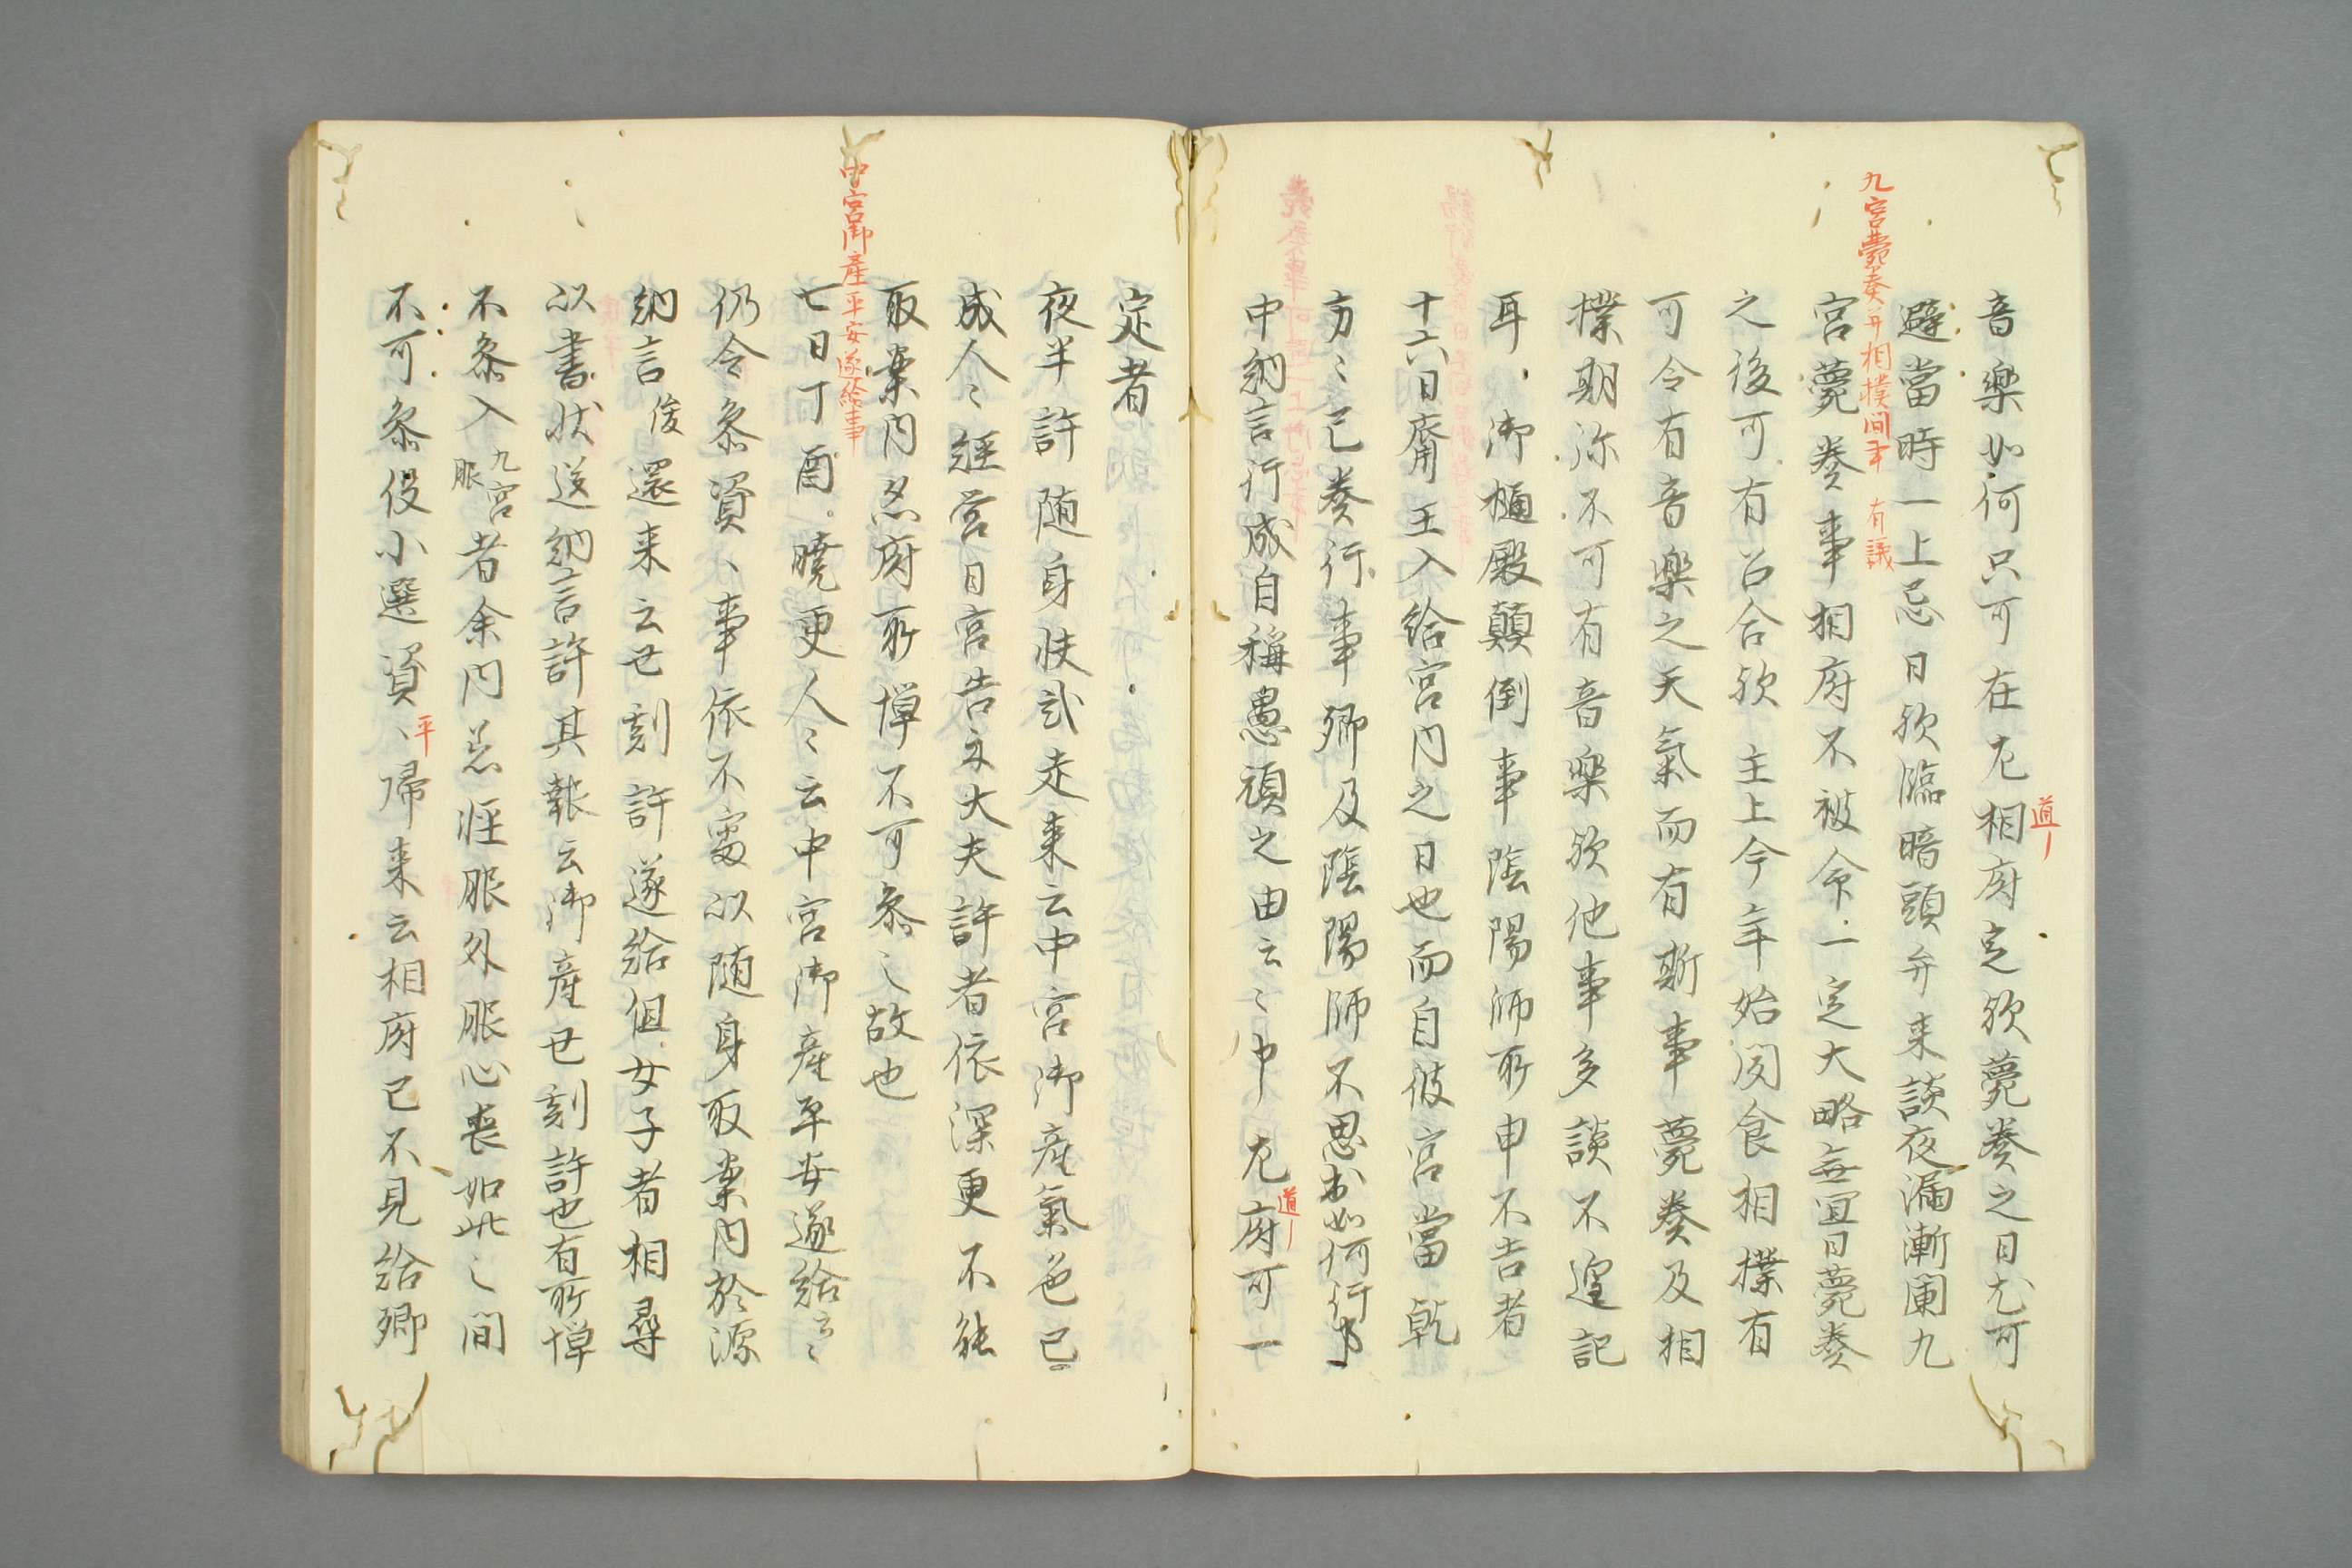 九宮薨奏并相撲間事 有議
音樂如何只可在左相府定欤薨奏之日尤可
道
避當時一上忌日欤臨暗頭弁来談夜漏漸闌九
宮薨奏事相府不被命一定大略無宜日薨奏
之後可有召合欤主上今年始聞食相撲有
可令有音樂之天氣而有斯事薨奏及相
撲期弥不可有音樂欤他事多談不遑記
耳御樋殿顛倒事陰陽師所申不吉者
十六日齊王入給宮内之日也而自彼宮當乾
方〻已奏行事卿及陰陽師不思お如何行事
中納言行成自稱愚頑之由云〻中左府可一
道
定者
夜半許随身扶武走来云中宮御産氣色已
成人〻経営日宮告立大夫許者依深更不能
取案内忽府所憚不可参之故也
中宮御産平安遂給事
七日丁酉曉更人〻云中宮御産平安遂給云〻
仍令参資、事依不審以随身取案内於源
納言俊還来云丑刻許遂給但女子者相尋
以書状送納言許其報云御産丑刻許也有所憚
不参入九宮服者余内忌軽服外服心喪如此之間
不可参役小選資、歸来云相府已不見給卿
平